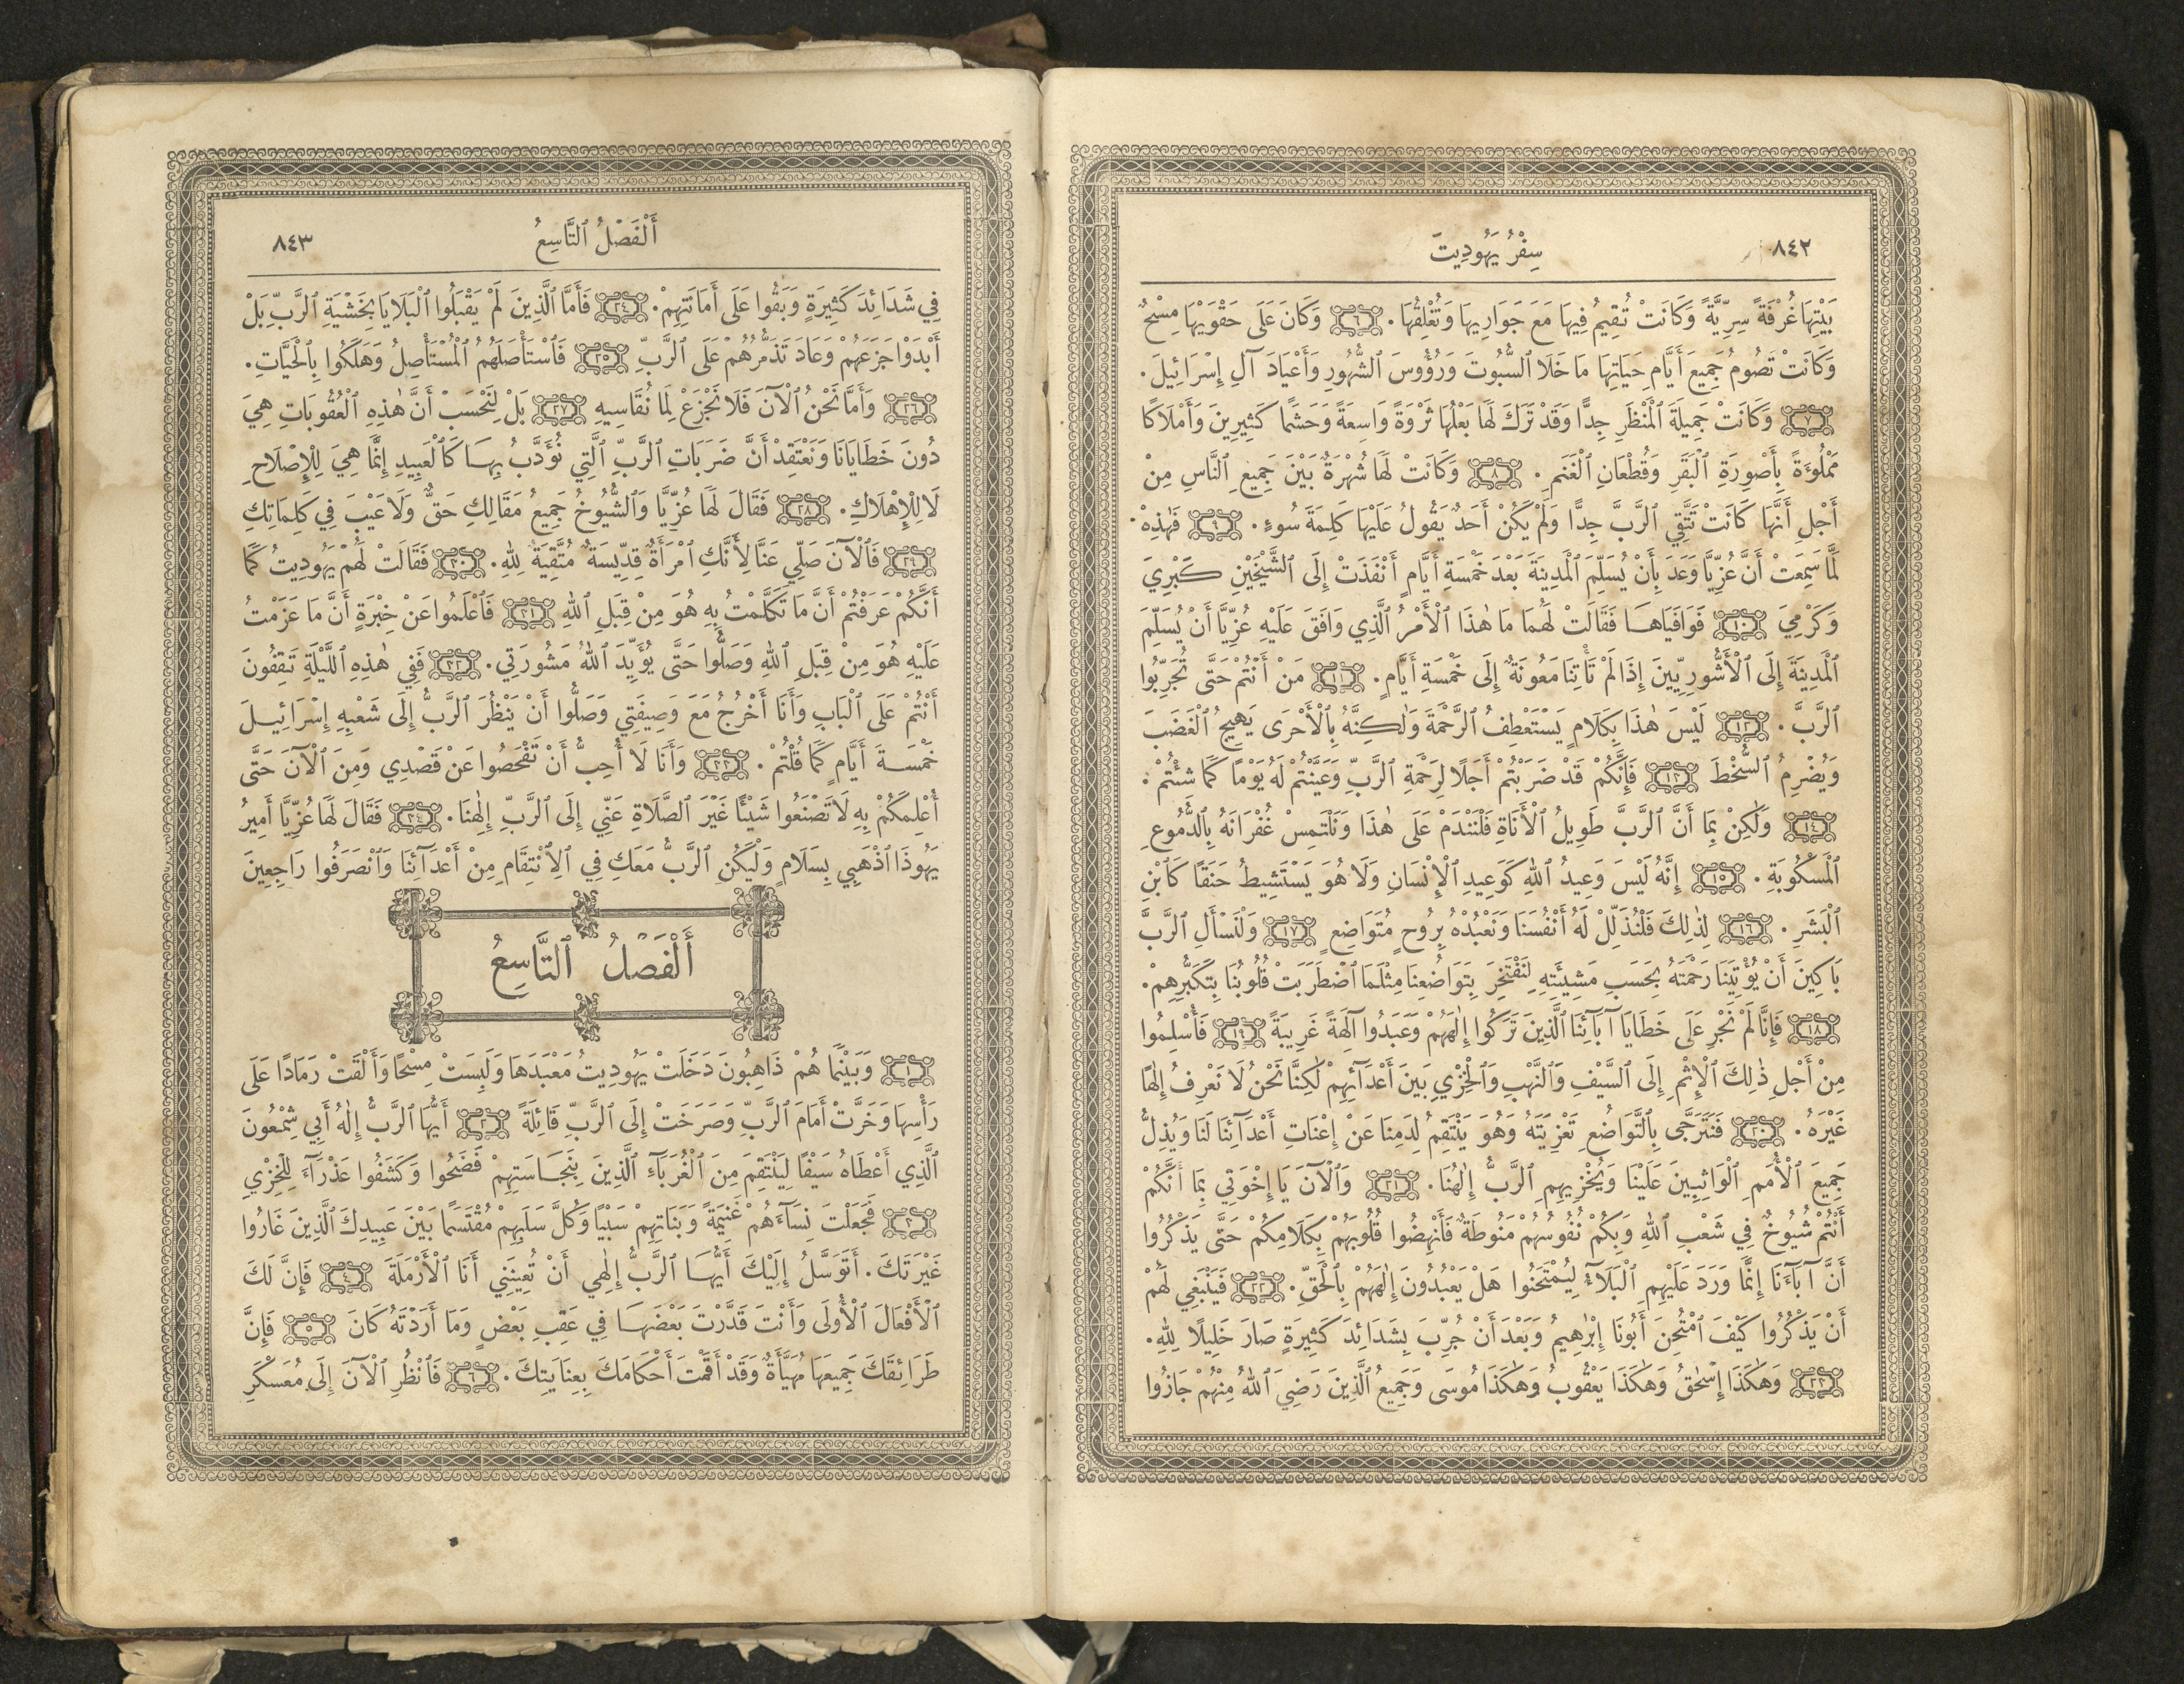 ٨٤٢
سِفْرُ يَهُودِيتَ
بَيْتِهَا غُرْفَةً سِرِّيَّةً وَكَانَتْ تُقِيمُ فِيهَا مَعَ جَوَارِيهَا وَتُغْلِقُهَا . ٦ وَكَانَ عَلَى حَقْوَيْهَا مِسْحٌ
وَكَانَتْ تَصُومُ جَمِيعَ أَيَّامِ حَيَاتِهَا مَا خَلَا ٱلسُّبُوتَ وَرُؤُوسَ ٱلشُّهُورِ وَأَعْيَادَ آلِ إِسْرَائِيلَ .
٧ وَكَانَتْ جَمِيلَةَ ٱلْمَنْظَرِ جِدًّا وَقَدْ تَرَكَ لَهَا بَعْلُهَا ثَرْوَةً وَاسِعَةً وَحَشَمًا كَثِيرِينَ وَأَمْلَاكًا
مَمْلُوءَةً بِأَصْوِرَةِ ٱلْبَقَرِ وَقُطْعَانِ ٱلْغَنَمِ . ٨ وَكَانَتْ لَهَا شُهْرَةٌ بَيْنَ جَمِيعِ ٱلنَّاسِ مِنْ
أَجْلِ أَنَّهَا كَانَتْ تَتَّقِي ٱلرَّبَّ جِدًّا وَلَمْ يَكُنْ أَحَدٌ يَقُولُ عَلَيْهَا كَلِمَةَ سُوءٍ . ٩ فَهٰذِهْ
لَمَّا سَمِعَتْ أَنَّ عُزِّيَّا وَعَدَ بِأَنْ يُسَلِّمَ ٱلْمَدِينَةَ بَعْدَ خَمْسَةِ أَيَّامٍ أَنْفَذَتْ إِلَى ٱلشَّيْخَيْنِ كَبْرِيَ
وَكَرْمِيَ ١٠ فَوَافَيَاهَا فَقَالَتْ لَهُمَا مَا هٰذَا ٱلْأَمْرُ ٱلَّذِي وَافَقَ عَلَيْهِ عُزِّيَّا أَنْ يُسَلِّمَ
ٱلْمَدِينَةَ إِلَى ٱلْأَشُّورِيِّينَ إِذَا لَمْ تَأْتِنَا مَعُونَةٌ إِلَى خَمْسَةِ أَيَّامٍ . ١١ مَنْ أَنْتُمْ حَتَّى تُجَرِّبُوا
ٱلرَّبَّ . ١٢ لَيْسَ هٰذَا بِكَلَامٍ يَسْتَعْطِفُ ٱلرَّحْمَةَ وَلٰكِنَّهُ بِٱلْأَحْرَى يَهِيجُ ٱلْغَضَبَ
وَيُضْرِمُ ٱلسُّخْطَ ١٣ فَإِنَّكُمْ قَدْ ضَرَبْتُمْ أَجَلًا لِرَحْمَةِ ٱلرَّبِّ وَعَيَّنْتُمْ لَهُ يَوْمًا كَمَا شِئْتُمْ .
١٤ وَلٰكِنْ بِمَا أَنَّ ٱلرَّبَّ طَوِيلُ ٱلْأَنَاةِ فَلْنَنْدَمْ عَلَى هٰذَا وَنَلْتَمِسْ غُفْرَانَهُ بِٱلدُّمُوعِ
ٱلْمَسْكُوبَةِ . ١٥ إِنَّهُ لَيْسَ وَعِيدُ ٱللهِ كَوَعِيدِ ٱلْإِنْسَانِ وَلَا هُوَ يَسْتَشِيطُ حَنَقًا كَٱبْنِ
ٱلْبَشَرِ . ١٦ لِذٰلِكَ فَلْنُذَلِّلْ لَهُ أَنْفُسَنَا وَنَعْبُدْهُ بِرُوحٍ مُتَوَاضِعٍ ١٧ وَلْنَسْأَلِ ٱلرَّبَّ
بَاكِينَ أَنْ يُؤْتِيَنَا رَحْمَتَهُ بِحَسَبِ مَشِيئَتِهِ لِنَفْتَخِرَ بِتَوَاضُعِنَا مِثْلَمَا ٱضْطَرَبَتْ قُلُوبُنَا بِتَكَبُّرِهِمْ .
١٨ فَإِنَّا لَمْ نَجْرِ عَلَى خَطَايَا آبَآئِنَا ٱلَّذِينَ تَرَكُوا إِلٰهَهُمْ وَعَبَدُوا آلِهَةً غَرِيبَةً ١٩ فَأُسْلِمُوا
مِنْ أَجْلِ ذٰلِكَ ٱلْإِثْمِ إِلَى ٱلسَّيْفِ وَٱلنَّهْبِ وَٱلْخِزْيِ بَيْنَ أَعْدَآئِهِمْ لٰكِنَّا نَحْنُ لَا نَعْرِفُ إِلٰهًا
غَيْرَهُ . ٢٠ فَنَتَرَجَّى بِٱلتَّوَاضُعِ تَعْزِيَتَهُ وَهُوَ يَنْتَقِمُ لِدَمِنَا عَنْ إِعْنَاتِ أَعْدَآئِنَا لَنَا وَيُذِلُّ
جَمِيعَ ٱلْأُمَمِ ٱلْوَاثِبِينَ عَلَيْنَا وَيُخْزِيهِمِ ٱلرَّبُّ إِلٰهُنَا . ٢١ وَٱلْآنَ يَا إِخْوَتِي بِمَا أَنَّكُمْ
أَنْتُمْ شُيُوخٌ فِي شَعْبِ ٱللهِ وَبِكُمْ نُفُوسُهُمْ مَنُوطَةٌ فَأَنْهِضُوا قُلُوبَهُمْ بِكَلَامِكُمْ حَتَّى يَذْكُرُوا
أَنَّ آبَآءَنَا إِنَّمَا وَرَدَ عَلَيْهِمِ ٱلْبَلَآءُ لِيُمْتَحَنُوا هَلْ يَعْبُدُونَ إِلٰهَهُمْ بِٱلْحَقِّ . ٢٢ فَيَنْبَغِي لَهُمْ
أَنْ يَذْكُرُوا كَيْفَ ٱمْتُحِنَ أَبُونَا إِبْرٰهِيمُ وَبَعْدَ أَنْ جُرِّبَ بِشَدَائِدَ كَثِيرَةٍ صَارَ خَلِيلًا لِلّٰهِ .
٢٣ وَهٰكَذَا إِسْحٰقُ وَهٰكَذَا يَعْقُوبُ وَهٰكَذَا مُوسَى وَجَمِيعُ ٱلَّذِينَ رَضِيَ ٱللهُ مِنْهُمْ جَازُوا
أَلْفَصْلُ ٱلتَّاسِعُ
٨٤٣
فِي شَدَائِدَ كَثِيرَةٍ وَبَقُوا عَلَى أَمَانَتِهِمْ . ٢٤ فَأَمَّا ٱلَّذِينَ لَمْ يَقْبَلُوا ٱلْبَلَايَا بِخَشْيَةِ ٱلرَّبِّ بَلْ
أَبْدَوْا جَزَعَهُمْ وَعَادَ تَذَمُّرُهُمْ عَلَى ٱلرَّبِّ ٢٥ فَٱسْتَأْصَلَهُمُ ٱلْمُسْتَأْصِلُ وَهَلَكُوا بِٱلْحَيَّاتِ .
٢٦ وَأَمَّا نَحْنُ ٱلْآنَ فَلَا نَجْزَعْ لِمَا نُقَاسِيهِ ٢٧ بَلْ لِنَحْسَبْ أَنَّ هٰذِهِ ٱلْعُقُوبَاتِ هِيَ
دُونَ خَطَايَانَا وَنَعْتَقِدْ أَنَّ ضَرَبَاتِ ٱلرَّبِّ ٱلَّتِي نُؤَدَّبُ بِهَا كَٱلْعَبِيدِ إِنَّمَا هِيَ لِلْإِصْلَاحِ
لَا لِلْإِهْلَاكِ . ٢٨ فَقَالَ لَهَا عُزِّيَّا وَٱلشُّيُوخُ جَمِيعُ مَقَالِكِ حَقٌّ وَلَا عَيْبَ فِي كَلِمَاتِكِ
٢٩ فَٱلْآنَ صَلِّي عَنَّا لِأَنَّكِ ٱمْرَأَةٌ قِدِّيسَةٌ مُتَّقِيَةٌ لِلّٰهِ . ٣٠ فَقَالَتْ لَهُمْ يَهُودِيتُ كَمَا
أَنَّكُمْ عَرَفْتُمْ أَنَّ مَا تَكَلَّمْتُ بِهِ هُوَ مِنْ قِبَلِ ٱللهِ ٣١ فَٱعْلَمُوا عَنْ خِبْرَةٍ أَنَّ مَا عَزَمْتُ
عَلَيْهِ هُوَ مِنْ قِبَلِ ٱللهِ وَصَلُّوا حَتَّى يُؤَيِّدَ ٱللهُ مَشُورَتِي . ٣٢ فَفِي هٰذِهِ ٱللَّيْلَةِ تَقِفُونَ
أَنْتُمْ عَلَى ٱلْبَابِ وَأَنَا أَخْرُجُ مَعَ وَصِيفَتِي وَصَلُّوا أَنْ يَنْظُرَ ٱلرَّبُّ إِلَى شَعْبِهِ إِسْرَائِيلَ
خَمْسَةَ أَيَّامٍ كَمَا قُلْتُمْ . ٣٣ وَأَنَا لَا أُحِبُّ أَنْ تَفْحَصُوا عَنْ قَصْدِي وَمِنَ ٱلْآنَ حَتَّى
أُعْلِمَكُمْ بِهِ لَا تَصْنَعُوا شَيْئًا غَيْرَ ٱلصَّلَاةِ عَنِّي إِلَى ٱلرَّبِّ إِلٰهِنَا . ٣٤ فَقَالَ لَهَا عُزِّيَّا أَمِيرُ
يَهُوذَا ٱذْهَبِي بِسَلَامٍ وَلْيَكُنِ ٱلرَّبُّ مَعَكِ فِي ٱلِٱنْتِقَامِ مِنْ أَعْدَآئِنَا وَٱنْصَرَفُوا رَاجِعِينَ
أَلْفَصْلُ ٱلتَّاسِعُ
١ وَبَيْنَمَا هُمْ ذَاهِبُونَ دَخَلَتْ يَهُودِيتُ مَعْبَدَهَا وَلَبِسَتْ مِسْحًا وَأَلْقَتْ رَمَادًا عَلَى
رَأْسِهَا وَخَرَّتْ أَمَامَ ٱلرَّبِّ وَصَرَخَتْ إِلَى ٱلرَّبِّ قَائِلَةً ٢ أَيُّهَا ٱلرَّبُّ إِلٰهُ أَبِي شِمْعُونَ
ٱلَّذِي أَعْطَاهُ سَيْفًا لِيَنْتَقِمَ مِنَ ٱلْغُرَبَآءِ ٱلَّذِينَ بِنَجَاسَتِهِمْ فَضَحُوا وَكَشَفُوا عَذْرَآءَ لِلْخِزْيِ
٣ فَجَعَلْتَ نِسَآءَهُمْ غَنِيمَةً وَبَنَاتِهِمْ سَبْيًا وَكُلَّ سَلَبِهِمْ مُقْتَسَمًا بَيْنَ عَبِيدِكَ ٱلَّذِينَ غَارُوا
غَيْرَتَكَ . أَتَوَسَّلُ إِلَيْكَ أَيُّهَا ٱلرَّبُّ إِلٰهِي أَنْ تُعِينَنِي أَنَا ٱلْأَرْمَلَةَ ٤ فَإِنَّ لَكَ
ٱلْأَفْعَالَ ٱلْأُولَى وَأَنْتَ قَدَّرْتَ بَعْضَهَا فِي عَقِبِ بَعْضٍ وَمَا أَرَدْتَهُ كَانَ ٥ فَإِنَّ
طَرَائِقَكَ جَمِيعَهَا مُهَيَّأَةٌ وَقَدْ أَقَمْتَ أَحْكَامَكَ بِعِنَايَتِكَ . ٦ فَٱنْظُرِ ٱلْآنَ إِلَى مُعَسْكَرِ